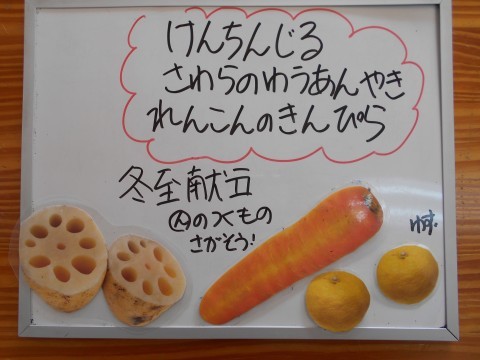 けんちんじる
さわらのゆうあんやき
れんこんのきんぴら
冬至献立
んのつくもの
さがそう!
ゆず